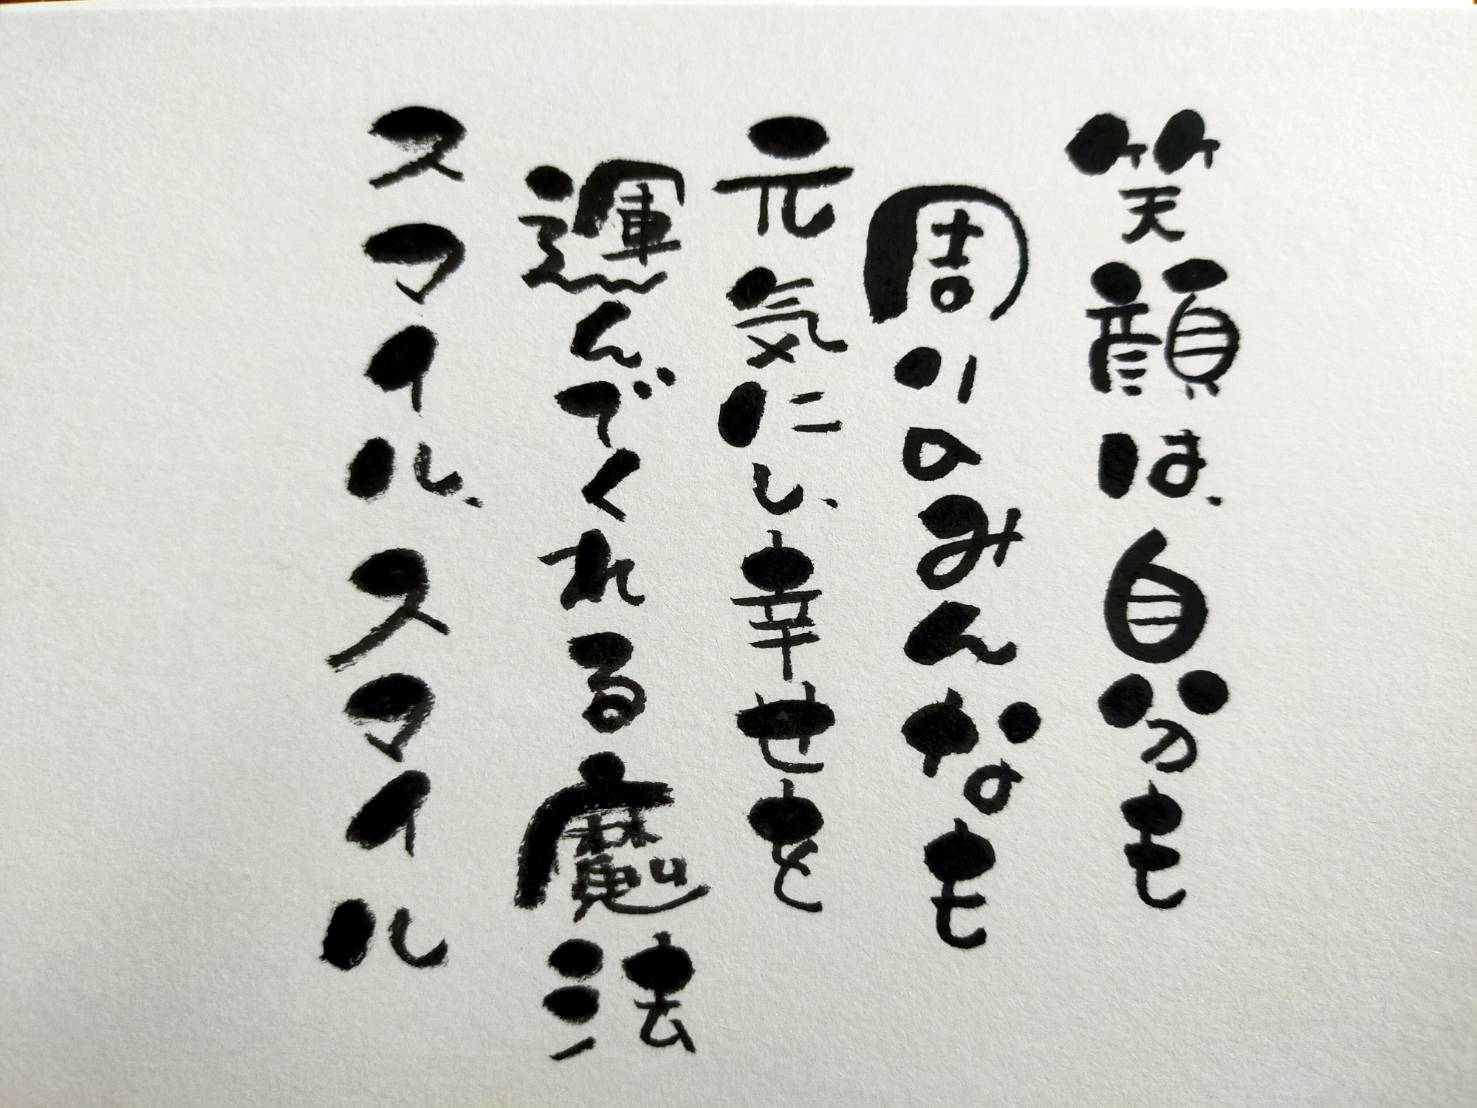 笑顔は、自分も
周りのみんなも
元気にし、幸せを
運んでくれる魔法
スマイル、スマイル